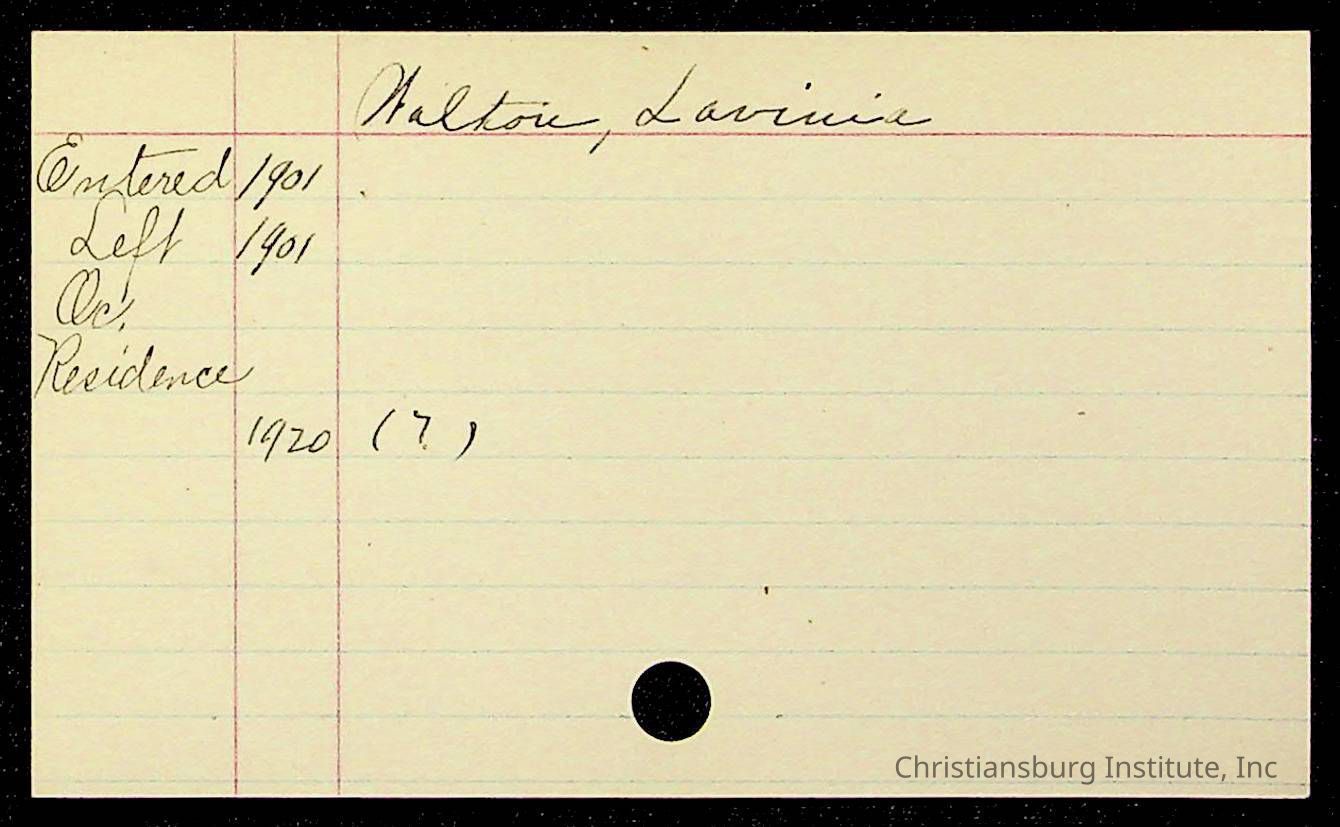 Walton, Lavinia
Entered 1901
Left 1901
Oc.
Residence
1920 (?)
Christiansburg Institute, Inc